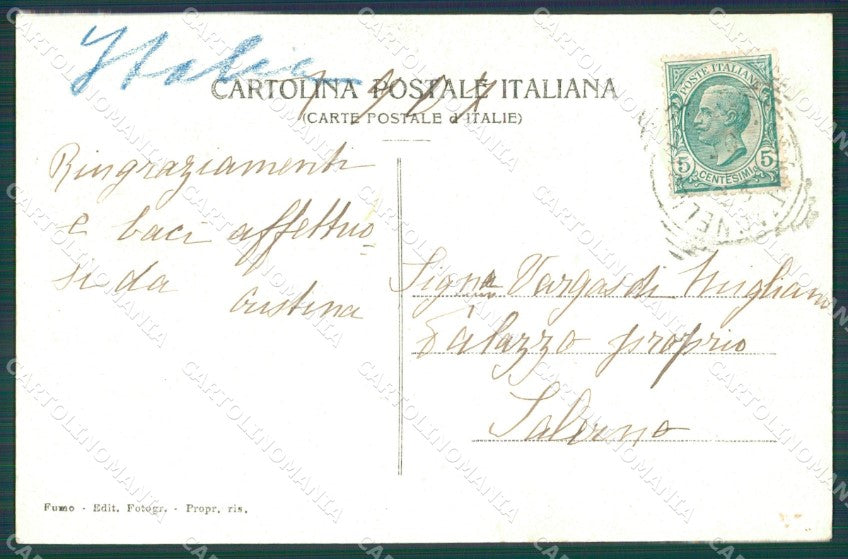 Italia
CARTOLINA POSTALE ITALIANA
(CARTE POSTALE d'ITALIE)
POSTE ITALIANE
5 CENTESIMI 5
Ringraziamenti
e baci affettuo=
si da
Cristina
Sigra Vargas di Migliano
Palazzo proprio
Salerno
Fumo - Edit. Fotogr. - Propr. ris.
CARTOLINOMANIA